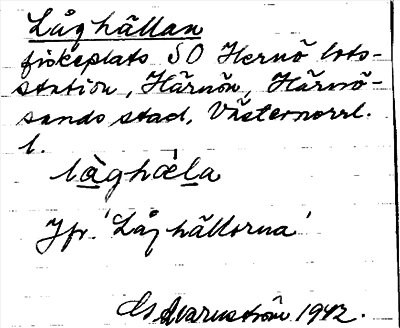 Låghällan
fiskeplats SO Hernö lots-
station, Härnön, Härnö-
sands stad, Västernorrl.
l.
làghǽla
Jfr. 'Låghällorna'
1942.